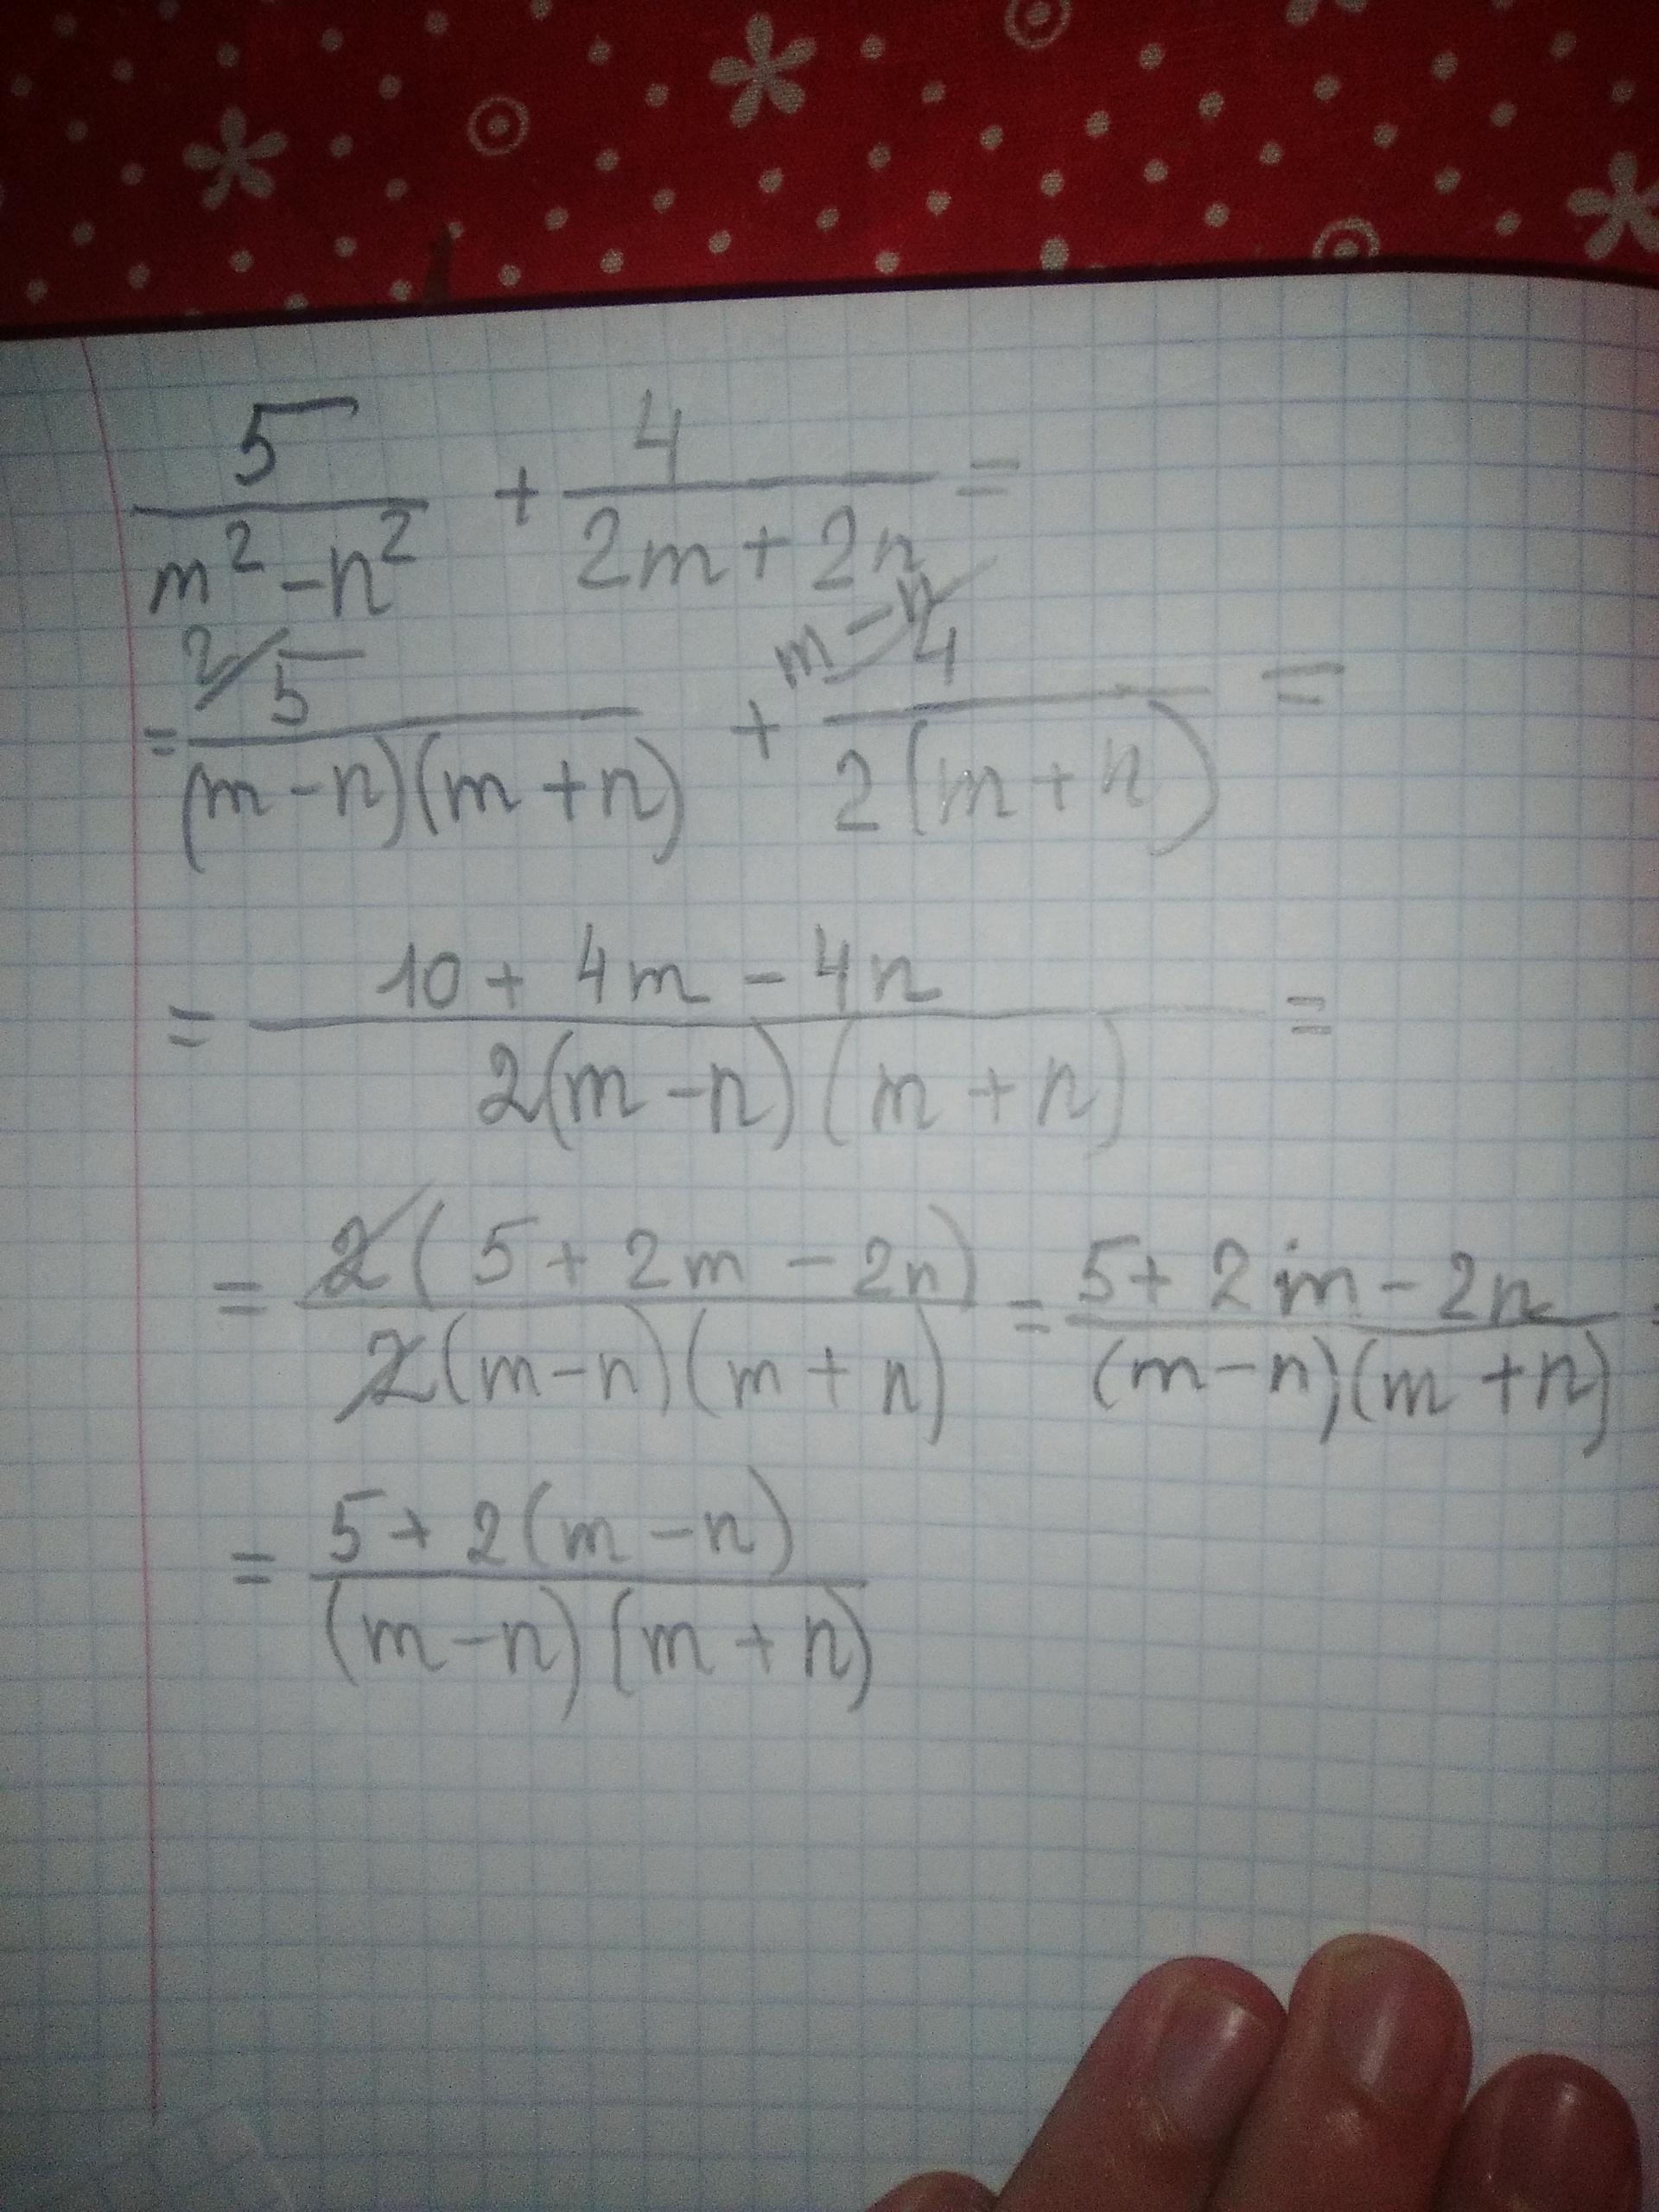 5/(m² - n²) + 4/(2m + 2n) =
= 2/ 5/((m - n)(m + n)) + m - n/ 4/(2(m + n)) =
= (10 + 4m - 4n)/(2(m - n)(m + n)) =
= 2(5 + 2m - 2n)/(2(m - n)(m + n)) = (5 + 2m - 2n)/((m - n)(m + n)) =
= (5 + 2(m - n))/((m - n)(m + n))